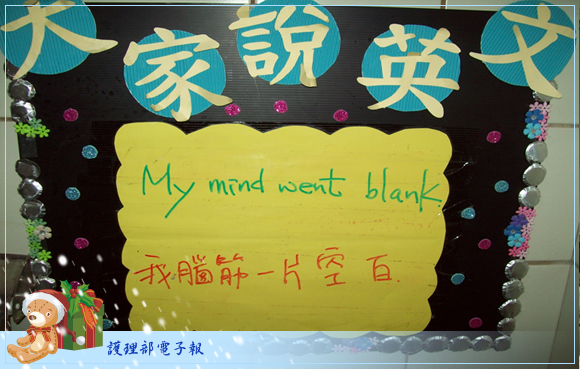 大家說英文
My mind went blank
我腦筋一片空百.
護理部電子報